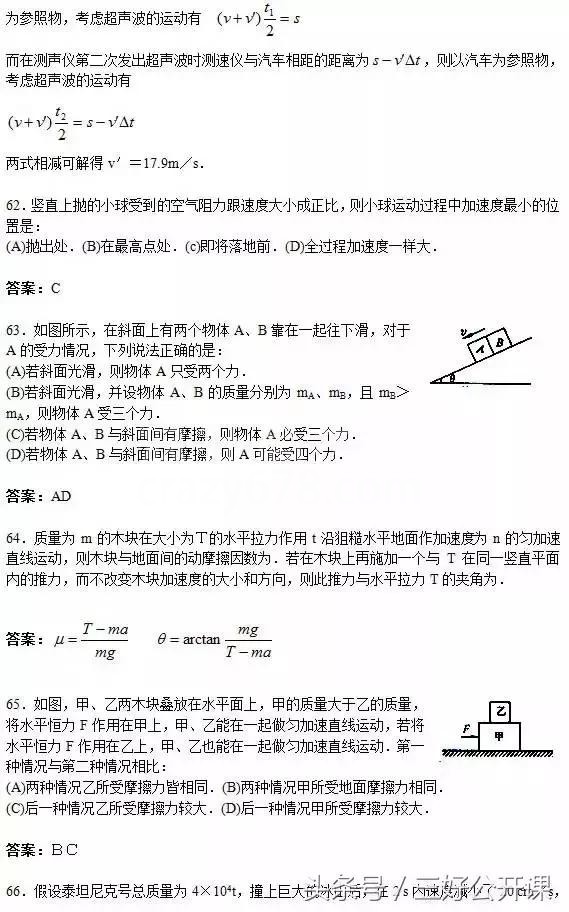 为参照物，考虑超声波的运动有 (v+v')t₁/2=s
而在测声仪第二次发出超声波时测速仪与汽车相距的距离为s−v'Δt，则以汽车为参照物，
考虑超声波的运动有
(v+v')t₂/2=s−v'Δt
两式相减可解得v′＝17.9m／s．
62.竖直上抛的小球受到的空气阻力跟速度大小成正比，则小球运动过程中加速度最小的位
置是：
(A)抛出处．(B)在最高点处．(c)即将落地前．(D)全过程加速度一样大．
答案：C
63．如图所示，在斜面上有两个物体 A、B 靠在一起往下滑，对于
A 的受力情况，下列说法正确的是：
(A)若斜面光滑，则物体 A 只受两个力．
(B)若斜面光滑，并设物体 A、B 的质量分别为 mA、mB，且 mB＞
mA，则物体 A 受三个力．
(C)若物体 A、B 与斜面间有摩擦，则物体 A 必受三个力．
(D)若物体 A、B 与斜面间有摩擦，则 A 可能受四个力．
v
A B
θ
答案：AD
64．质量为 m 的木块在大小为T的水平拉力作用 t 沿狙糙水平地面作加速度为 n 的匀加速
直线运动，则木块与地面间的动摩擦因数为．若在木块上再施加一个与 T 在同一竖直平面
内的推力，而不改变木块加速度的大小和方向，则此推力与水平拉力 T 的夹角为．
答案：μ=(T−ma)/mg θ=arctan mg/(T−ma)
65．如图，甲、乙两木块叠放在水平面上，甲的质量大于乙的质量，
将水平恒力 F 作用在甲上，甲、乙能在一起做匀加速直线运动，若将
水平恒力 F 作用在乙上，甲、乙也能在一起做匀加速直线运动．第一
种情况与第二种情况相比：
(A)两种情况乙所受摩擦力皆相同．(B)两种情况甲所受地面摩擦力相同．
(C)后一种情况乙所受摩擦力较大．(D)后一种情况甲所受摩擦力较大．
乙
F 甲
答案：ＢＣ
66．假设泰坦尼克号总质量为 4×10⁴t，撞上巨大的冰山后，在 2s 内速度减小
头条号／三好公开课